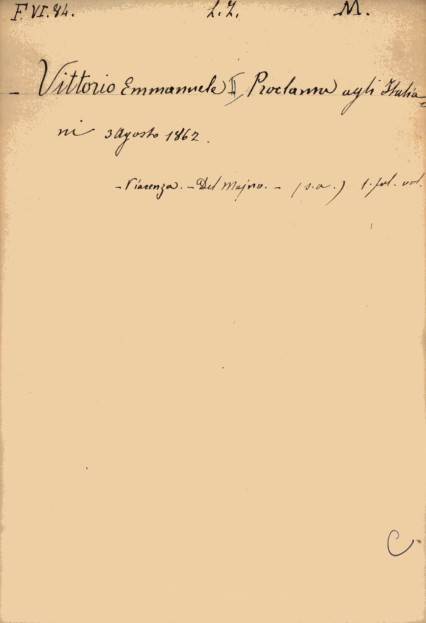 F VI. 94. L. Z. M.
- Vittorio Emmanuele II, Proclama agli Italia-
ni 3 agosto 1862.
- Piacenza. - Del Majno. - (s. a.) 1. fol. vol.
C